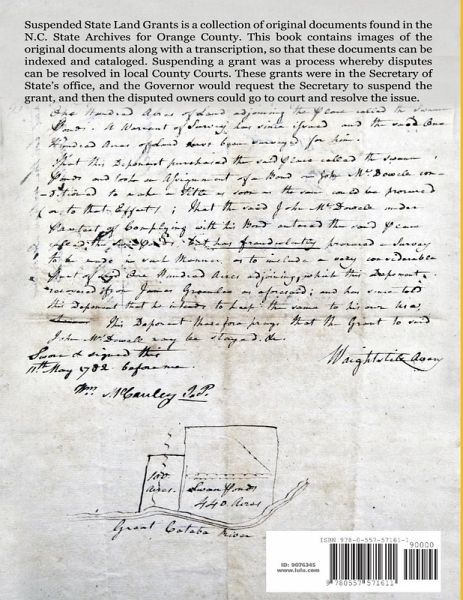 Suspended State Land Grants is a collection of original documents found in the
N.C. State Archives for Orange County. This book contains images of the
original documents along with a transcription, so that these documents can be
indexed and cataloged. Suspending a grant was a process whereby disputes
can be resolved in local County Courts. These grants were in the Secretary of
State's office, and the Governor would request the Secretary to suspend the
grant, and then the disputed owners could go to court and resolve the issue.
One Hundred Acres of Land adjoining the place called the Swan
Ponds. A Warrant of Survey has since issued and the said One
Hundred Acres of Land have been surveyed for him.
That this Deponent purchased the said place called the Swan
Ponds and took an Assignment of a Bond John McDowell con-
ditioned to make a Title as soon as the same could be procured
(or to that Effect); That the said John McDowell under
of Complying with his Bond entered the said place
called the Swan Ponds, but has fraudulently procured a Survey
to be made in such Manner as to include a very considerable
Part of said One Hundred Acres adjoining, which this Deponent
of James Greenlee as aforesaid; and has since told
this Deponent that he intends to keep the same to his own Use,
This Deponent therefore prays that the Grant to said
John McDowell may be stayed. &c.
Sworn & signed this
11th May 1782 before me
Wm McCauley J.P.
Waightstill Avery
100
Acres.
Swan Ponds
440 Acres
Great Cataba River
ISBN 978-0-557-57161-1
90000
ID: 9076345
www.lulu.com
9 780557 571611